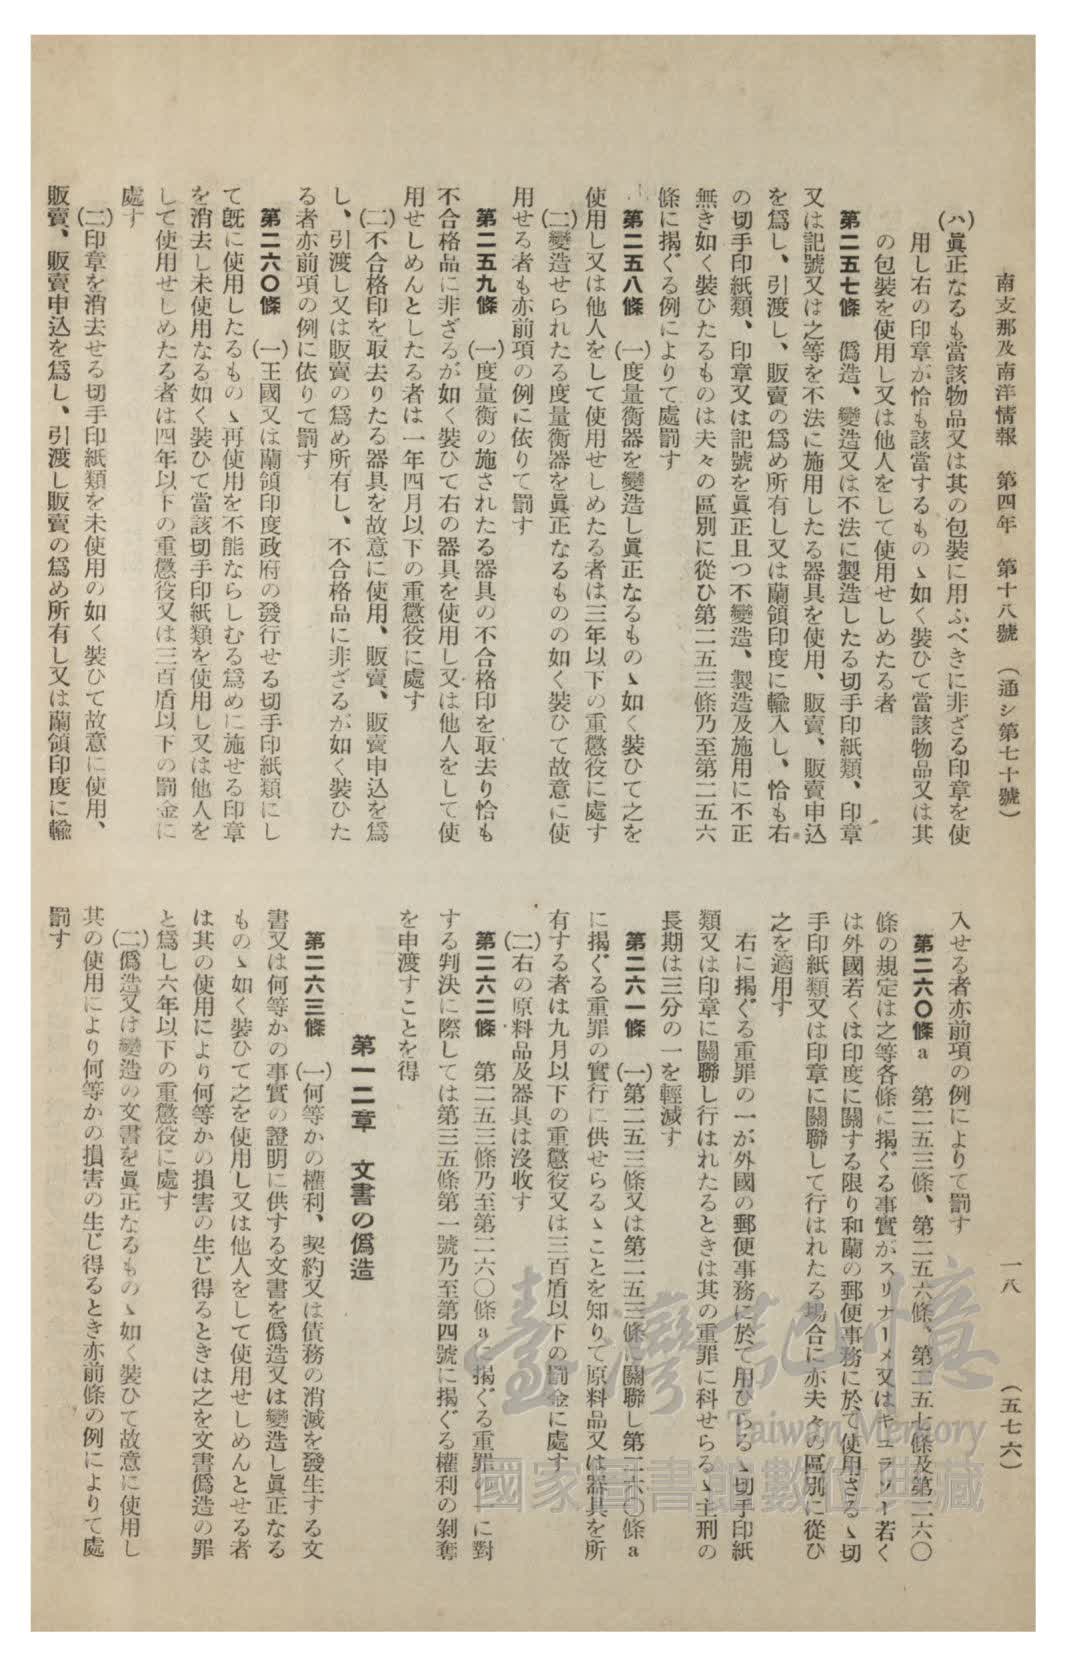 南支那及南洋情報　第四年　第十八號　（通シ第七十號）
一八
（五七六）
(ハ)眞正なるも當該物品又は其の包裝に用ふべきに非ざる印章を使
用し右の印章が恰も該當するものゝ如く裝ひて當該物品又は其
の包裝を使用し又は他人をして使用せしめたる者
第二五七條　僞造、變造又は不法に製造したる切手印紙類、印章
又は記號又は之等を不法に施用したる器具を使用、販賣、販賣申込
を爲し、引渡し、販賣の爲め所有し又は蘭領印度に輸入し、恰も右
の切手印紙類、印章又は記號を眞正且つ不變造、製造及施用に不正
無き如く裝ひたるものは夫々の區別に從ひ第二五三條乃至第二五六
條に揭ぐる例によりて處罰す
第二五八條　(一)度量衡器を變造し眞正なるものゝ如く裝ひて之を
使用し又は他人をして使用せしめたる者は三年以下の重懲役に處す
(二)變造せられたる度量衡器を眞正なるものの如く裝ひて故意に使
用せる者も亦前項の例に依りて罰す
第二五九條　(一)度量衡の施されたる器具の不合格印を取去り恰も
不合格品に非ざるが如く裝ひて右の器具を使用し又は他人をして使
用せしめんとしたる者は一年四月以下の重懲役に處す
(二)不合格印を取去りたる器具を故意に使用、販賣、販賣申込を爲
し、引渡し又は販賣の爲め所有し、不合格品に非ざるが如く裝ひた
る者亦前項の例に依りて罰す
第二六〇條　(一)王國又は蘭領印度政府の發行せる切手印紙類にし
て旣に使用したるものゝ再使用を不能ならしむる爲めに施せる印章
を消去し未使用なる如く裝ひて當該切手印紙類を使用し又は他人を
して使用せしめたる者は四年以下の重懲役又は三百盾以下の罰金に
處す
(二)印章を消去せる切手印紙類を未使用の如く裝ひて故意に使用、
販賣、販賣申込を爲し、引渡し販賣の爲め所有し又は蘭領印度に輸
入せる者亦前項の例によりて罰す
第二六〇條a　第二五三條、第二五六條、第二五七條及第二六〇
條の規定は之等各條に揭ぐる事實がスリナーメ又はキュラソー若く
は外國若くは印度に關する限り和蘭の郵便事務に於て使用さるゝ切
手印紙類又は印章に關聯して行はれたる場合に亦夫々の區別に從ひ
之を適用す
右に揭ぐる重罪の一が外國の郵便事務に於て用ひらるゝ切手印紙
類又は印章に關聯し行はれたるときは其の重罪に科せらるゝ主刑の
長期は三分の一を輕減す
第二六一條　(一)第二五三條又は第二五三條に關聯し第二六〇條a
に揭ぐる重罪の實行に供せらるゝことを知りて原料品又は器具を所
有する者は九月以下の重懲役又は三百盾以下の罰金に處す
(二)右の原料品及器具は沒收す
第二六二條　第二五三條乃至第二六〇條aに揭ぐる重罪の一に對
する判決に際しては第三五條第一號乃至第四號に揭ぐる權利の剝奪
を申渡すことを得
第一二章　文書の僞造
第二六三條　(一)何等かの權利、契約又は債務の消滅を發生する文
書又は何等かの事實の證明に供する文書を僞造又は變造し眞正なる
ものゝ如く裝ひて之を使用し又は他人をして使用せしめんとせる者
は其の使用により何等かの損害の生じ得るときは之を文書僞造の罪
と爲し六年以下の重懲役に處す
(二)僞造又は變造の文書を眞正なるものゝ如く裝ひて故意に使用し
其の使用により何等かの損害の生じ得るとき亦前條の例によりて處
罰す
臺灣記憶
Taiwan Memory
國家圖書館數位典藏